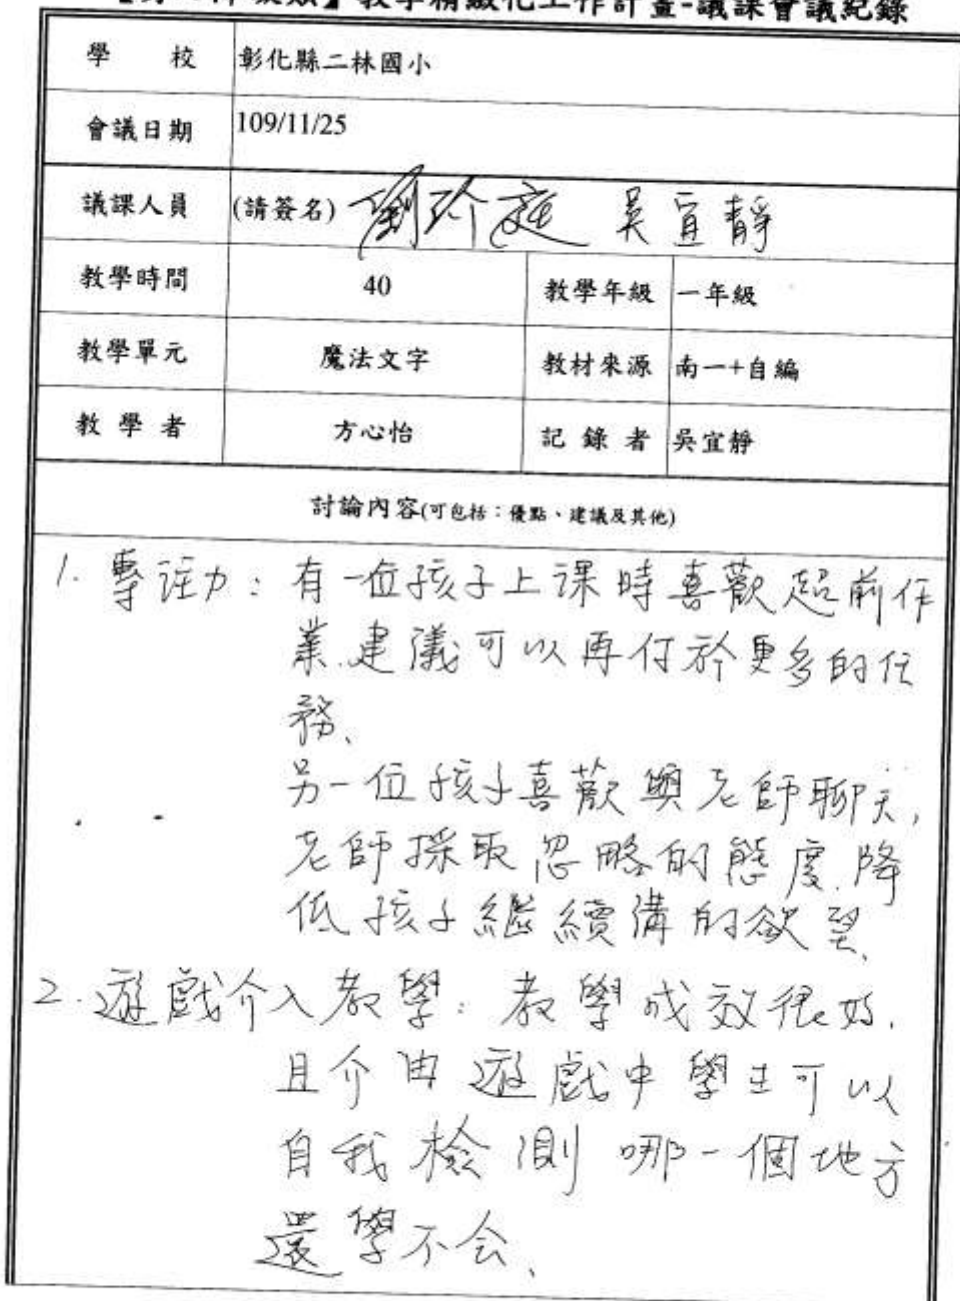 教學精緻化工作計畫-議課會議紀錄
學 校 彰化縣二林國小
會議日期 109/11/25
議課人員 (請簽名) 劉玠庭 吳宜靜
教學時間 40 教學年級 一年級
教學單元 魔法文字 教材來源 南一+自編
教 學 者 方心怡 記 錄 者 吳宜靜
討論內容(可包括：優點、建議及其他)
1. 專注力：有一位孩子上课時喜歡超前作
業.建議可以再付於更多的任
務、
另一位孩子喜歡與老師聊天,
老師採取忽略的態度.降
低孩子繼續講的欲望、
2. 遊戲介入教學：教學成效很好.
且介由遊戲中學生可以
自我檢測哪一個地方
還學不会、